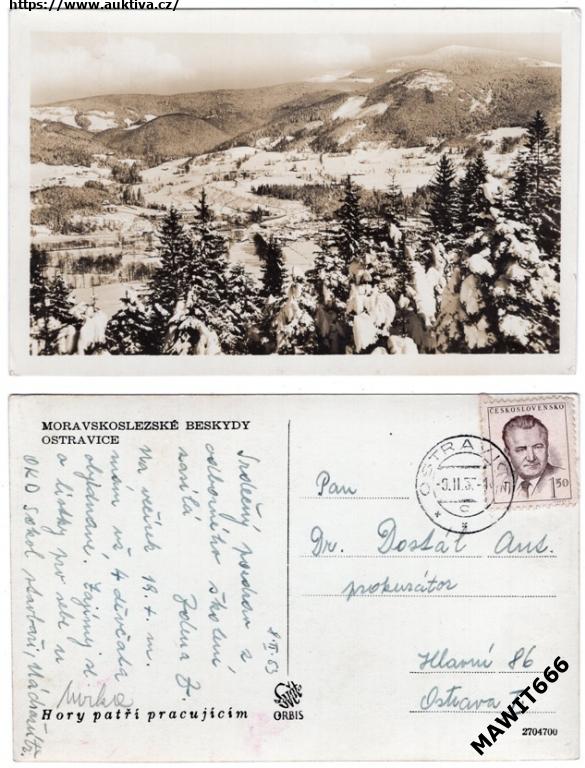 https://www.auktiva.cz/
MORAVSKOSLEZSKÉ BESKYDY
OSTRAVICE
8/II 53
Srdečný pozdrav z
odborného školení
zasílá
Na věneček 18. t. m.
mám už 4 děvčata
objednané. Zajímej s.
a lístky pro sebe u
OKD Sokol
Mirka
Hory patří pracujícím
ORBIS
ČESKOSLOVENSKO
1.50
OSTRAVICE
-9.II.53
c
Pan
Dr. Dostál Ant.
prokurátor
Hlavní 86
Ostrava I.
2704700
MAWIT666